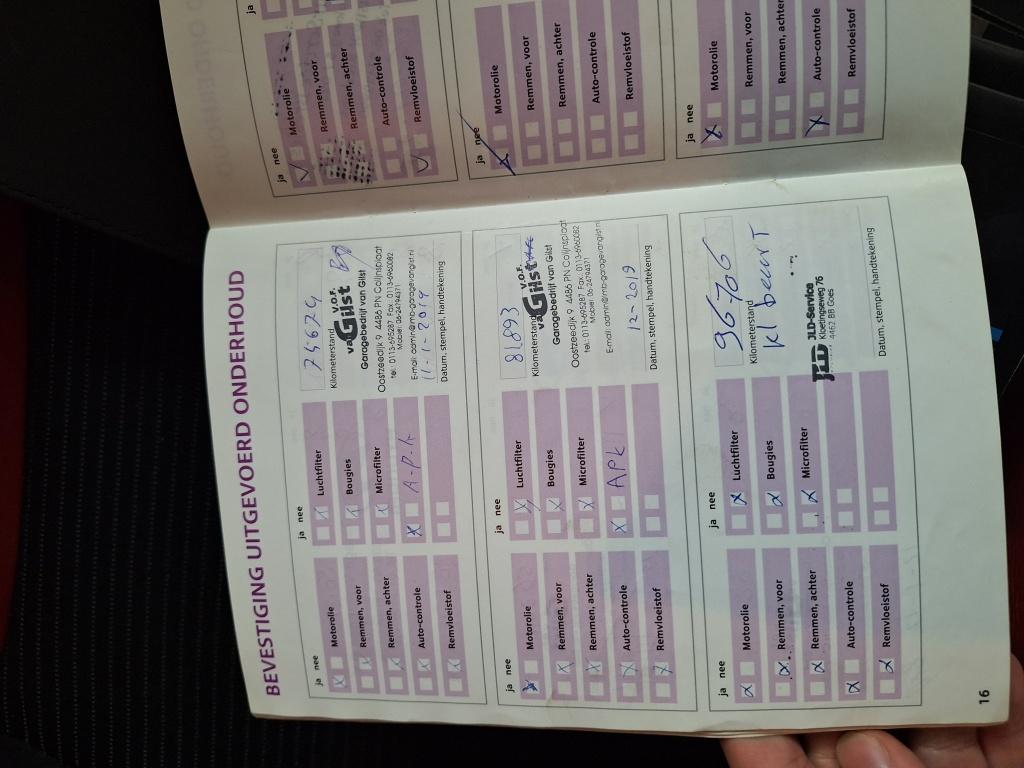 BEVESTIGING UITGEVOERD ONDERHOUD
ja nee
Motorolie
Remmen, voor
Remmen, achter
Auto-controle
Remvloeistof
ja nee
Luchtfilter
Bougies
Microfilter
A-p-k
Kilometerstand
v.o.f.
van Gilst
Garagebedrijf van Gilst
Oostzeedijk 9 4486 PN Colijnsplaat
tel.: 0113-695287 Fax.: 0113-6960082
Mobiel: 06-24794371
E-mail: admin@mb-garagevangilst.nl
11-1-2019
Datum, stempel, handtekening
ja nee
Motorolie
Remmen, voor
Remmen, achter
Auto-controle
Remvloeistof
ja nee
Luchtfilter
Bougies
Microfilter
APK
81.893
Kilometerstand
v.o.f.
van Gilst
Garagebedrijf van Gilst
Oostzeedijk 9 4486 PN Colijnsplaat
tel.: 0113-695287 Fax.: 0113-6960082
Mobiel: 06-24794371
E-mail: admin@mb-garagevangilst.nl
12-2019
Datum, stempel, handtekening
ja nee
Motorolie
Remmen, voor
Remmen, achter
Auto-controle
Remvloeistof
ja nee
Luchtfilter
Bougies
Microfilter
96706
Kilometerstand
kl beurt
JLD JLD-Service
Kloetingseweg 76
4462 BB Goes
Datum, stempel, handtekening
16
ja nee
Motorolie
Remmen, voor
Remmen, achter
Auto-controle
Remvloeistof
ja
ja nee
Motorolie
Remmen, voor
Remmen, achter
Auto-controle
Remvloeistof
ja nee
Motorolie
Remmen, voor
Remmen, achter
Auto-controle
Remvloeistof